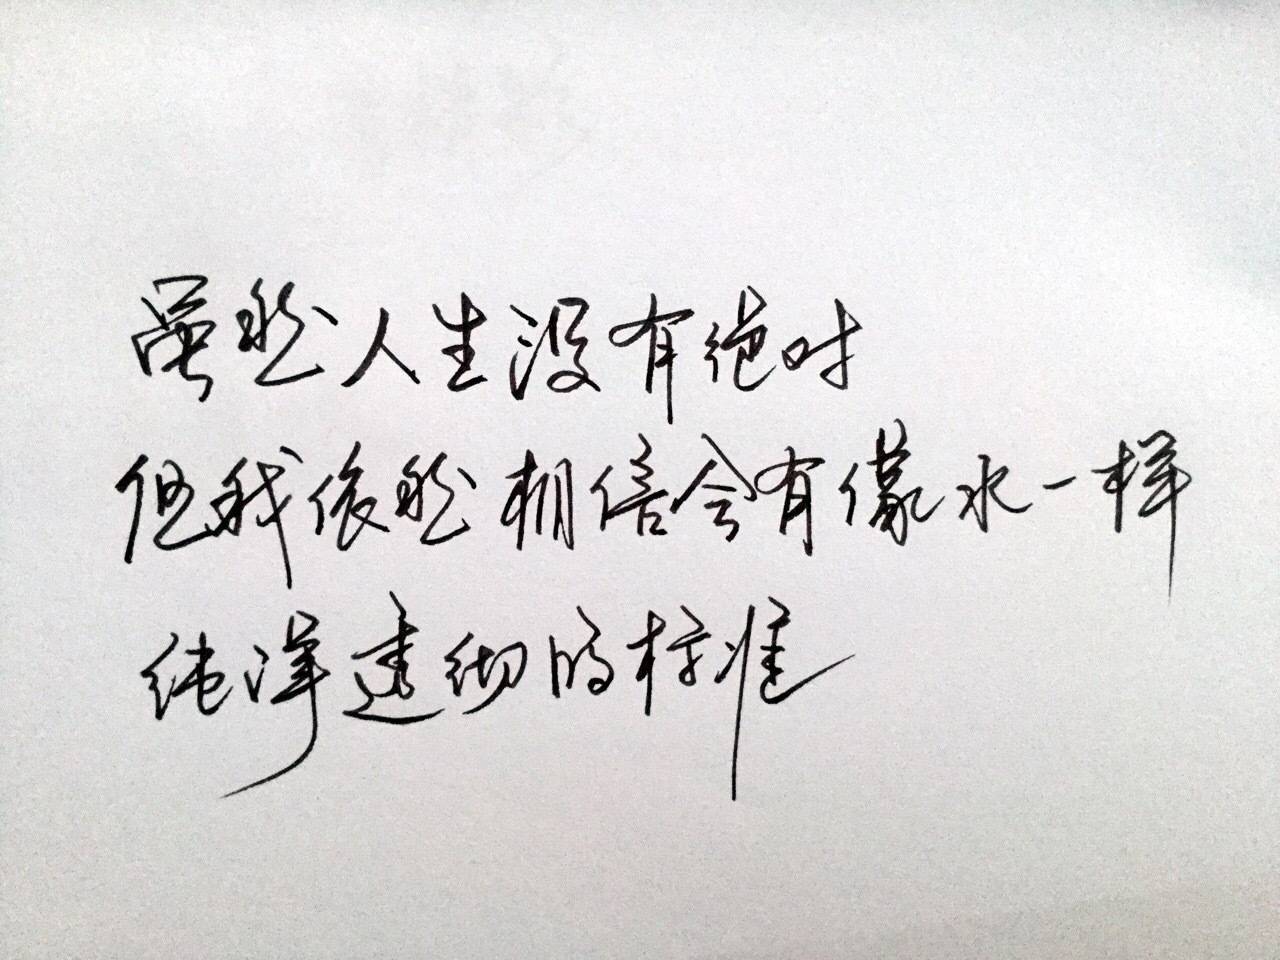 虽然人生没有绝对
但我依然相信会有像水一样
纯洋透彻的标准